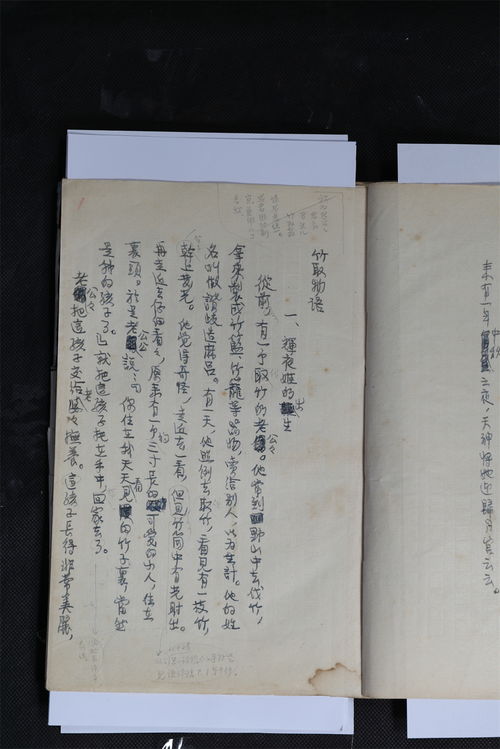 未有一年中秋之夜，天神將她迎歸月宮云云。
竹取物語
一、輝夜姬的出生
從前，有一个取竹的老公々。他常到野山中去伐竹，
拿來製成竹籃、竹籠等器物，賣給別人，以为生計。他的姓
名叫做讚岐造麻呂。有一天，他照例去取竹，看見有一枝竹，
幹上發光。他覺得奇怪，走近去一看，但見竹筒中有光射出。
再走近去仔細看々，原來有一个約三寸長的可愛的小人，住在
裏頭。於是老公公說：「你住在我天天看見的竹子裏，當然
是我的孩子了。」就把這孩子托在手中，回家去了。
老公々把這孩子交给老婆々撫養。這孩子長得非常美麗，